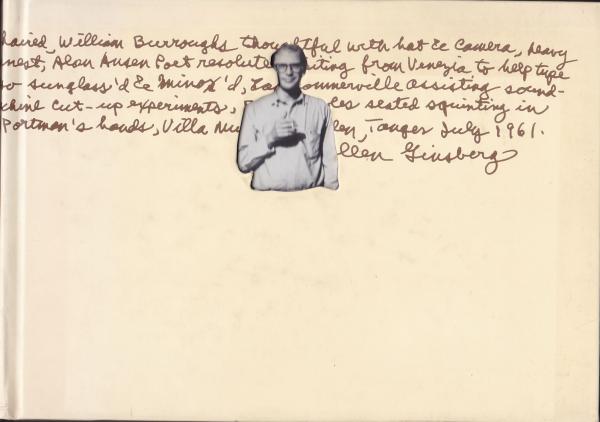 haired, William Burroughs thoughtful with hat & Camera, heavy
nest, Alan Ansen Poet resolute visiting from Venezia to help type
sunglass'd & Minox'd, Sommerville assisting sound-
chine cut-up experiments, les seated squinting in
Portman's hands, Villa Mu en, Tanger July 1961.
llen Ginsberg